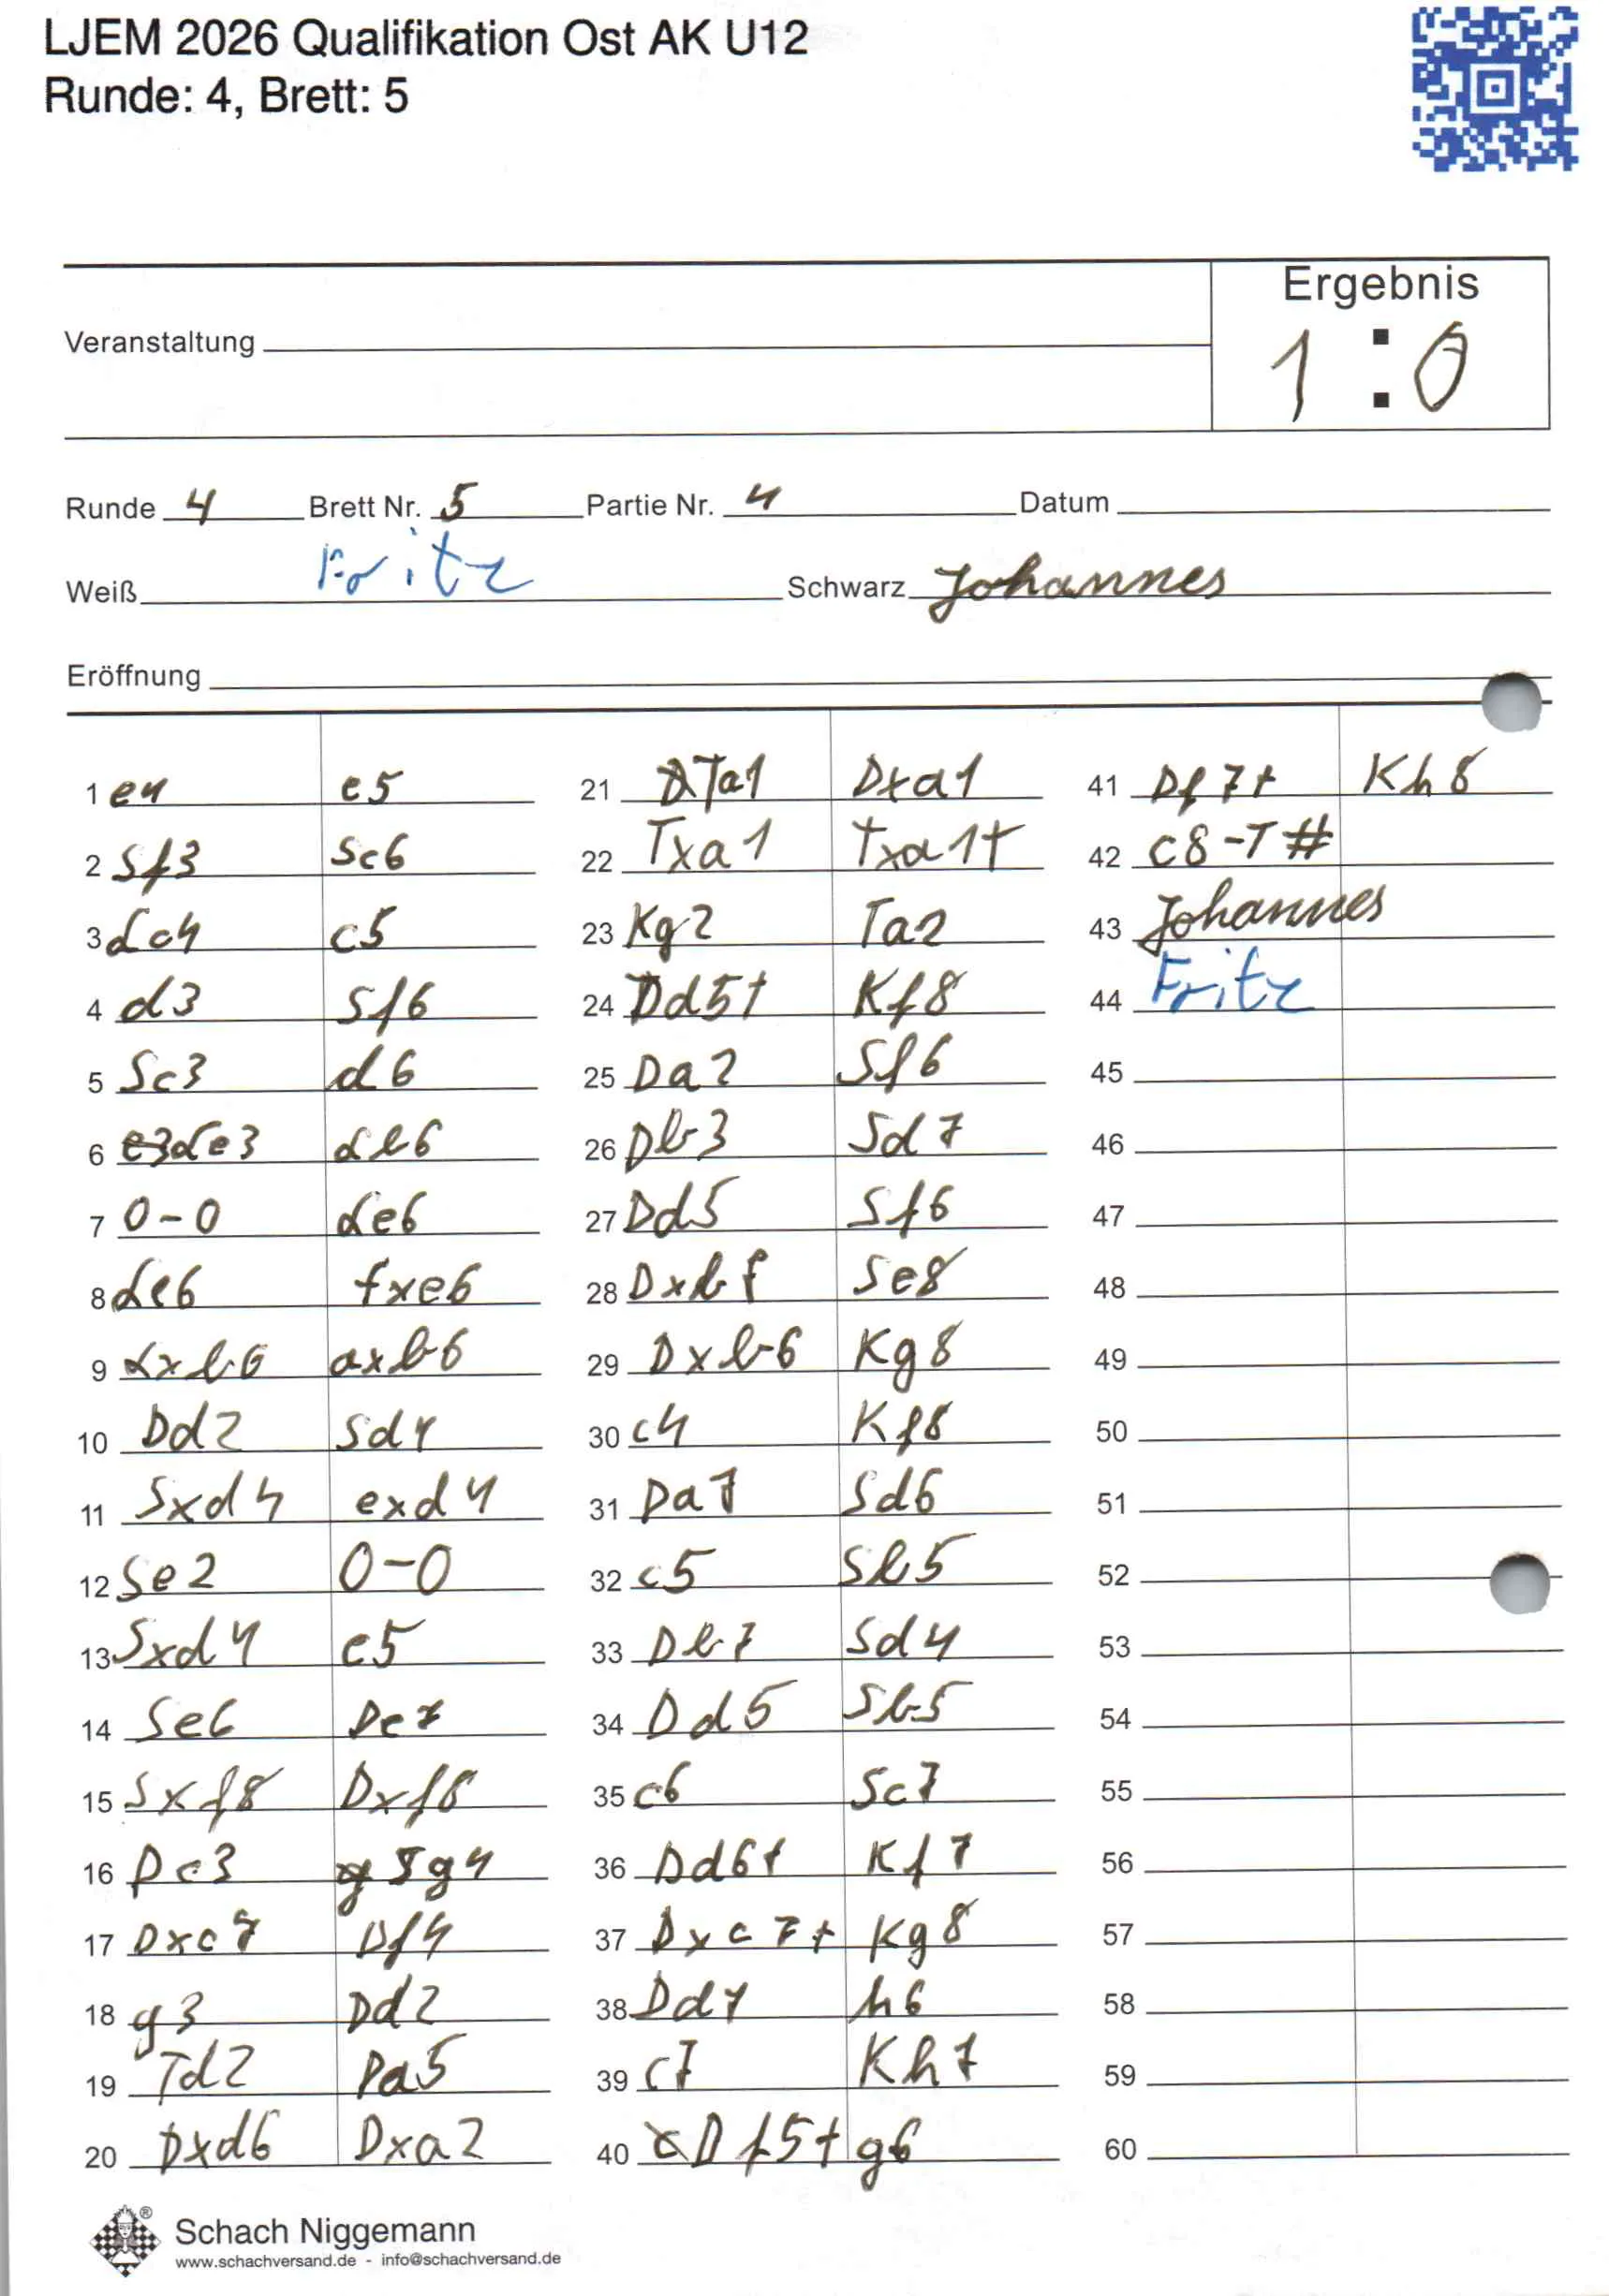 LJEM 2026 Qualifikation Ost AK U12
Runde: 4, Brett: 5
Ergebnis
1 : 0
Veranstaltung
Runde 4 Brett Nr. 5 Partie Nr. 4 Datum
Weiß Fritz Schwarz Johannes
Eröffnung
1 e4 e5
2 Sf3 Sc6
3 Lc4 c5
4 d3 Sf6
5 Sc3 d6
6 Le3 Lb6
7 0-0 Le6
8 Le6 fxe6
9 Lxb6 axb6
10 Dd2 Sd4
11 Sxd4 exd4
12 Se2 0-0
13 Sxd4 e5
14 Se6 De7
15 Sxf8 Dxf8
16 Dc3 Sg4
17 Dxc7 Df4
18 g3 Dd2
19 Td2 Da5
20 Dxd6 Dxa2
21 Ta1 Dxa1
22 Txa1 Txa1+
23 Kg2 Ta2
24 Dd5+ Kf8
25 Da2 Sf6
26 Db3 Sd7
27 Dd5 Sf6
28 Dxb7 Se8
29 Dxb6 Kg8
30 c4 Kf8
31 Da7 Sd6
32 c5 Sb5
33 Db7 Sd4
34 Dd5 Sb5
35 c6 Sc7
36 Dd6+ Kf7
37 Dxc7+ Kg8
38 Dd7 h6
39 c7 Kh7
40 Df5+ g6
41 Df7+ Kh8
42 c8-T#
43 Johannes
44 Fritz
45
46
47
48
49
50
51
52
53
54
55
56
57
58
59
60
®
Schach Niggemann
www.schachversand.de - info@schachversand.de